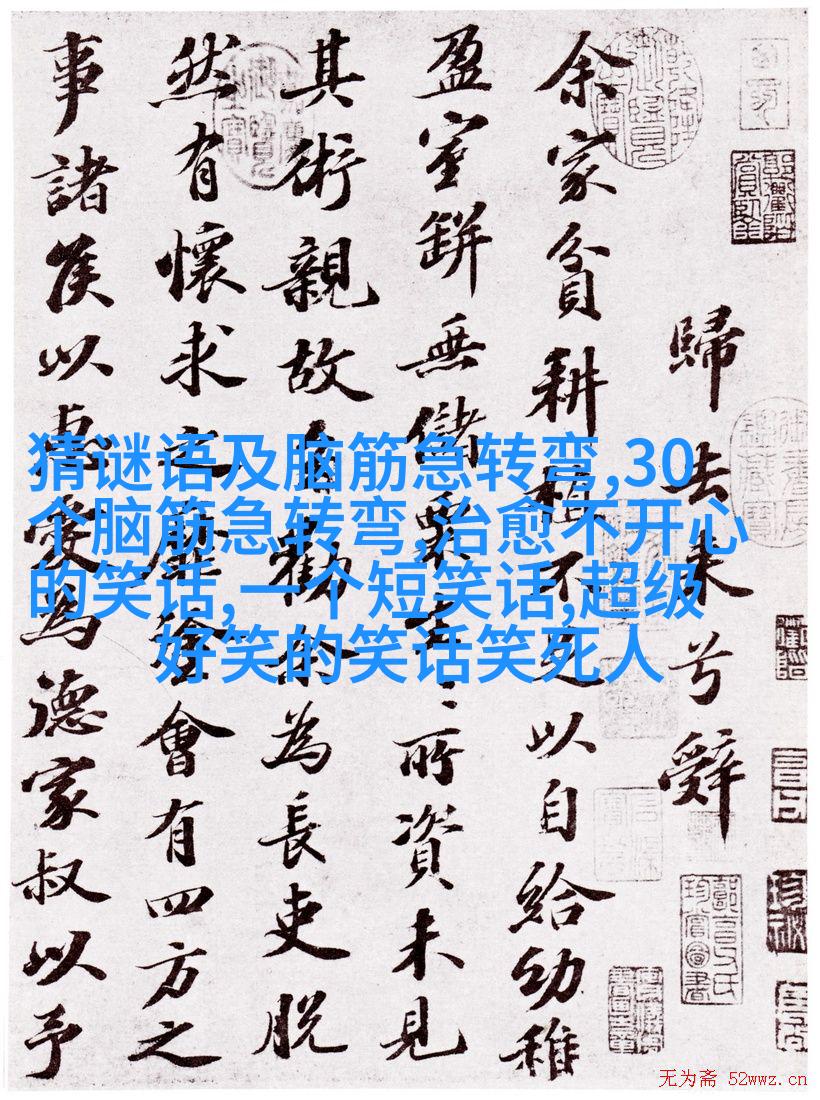 歸去来兮辭
余家貧耕植不足以自給幼稚
盈室缾無儲粟生生所資未見
其術親故多勸余為長吏脱
然有懷求之靡途會有四方之
事諸侯以惠愛為德家叔以予
猜谜语及脑筋急转弯,30
个脑筋急转弯,治愈不开心
的笑话,一个短笑话,超级
好笑的笑话笑死人
无为斋 52wwz.cn